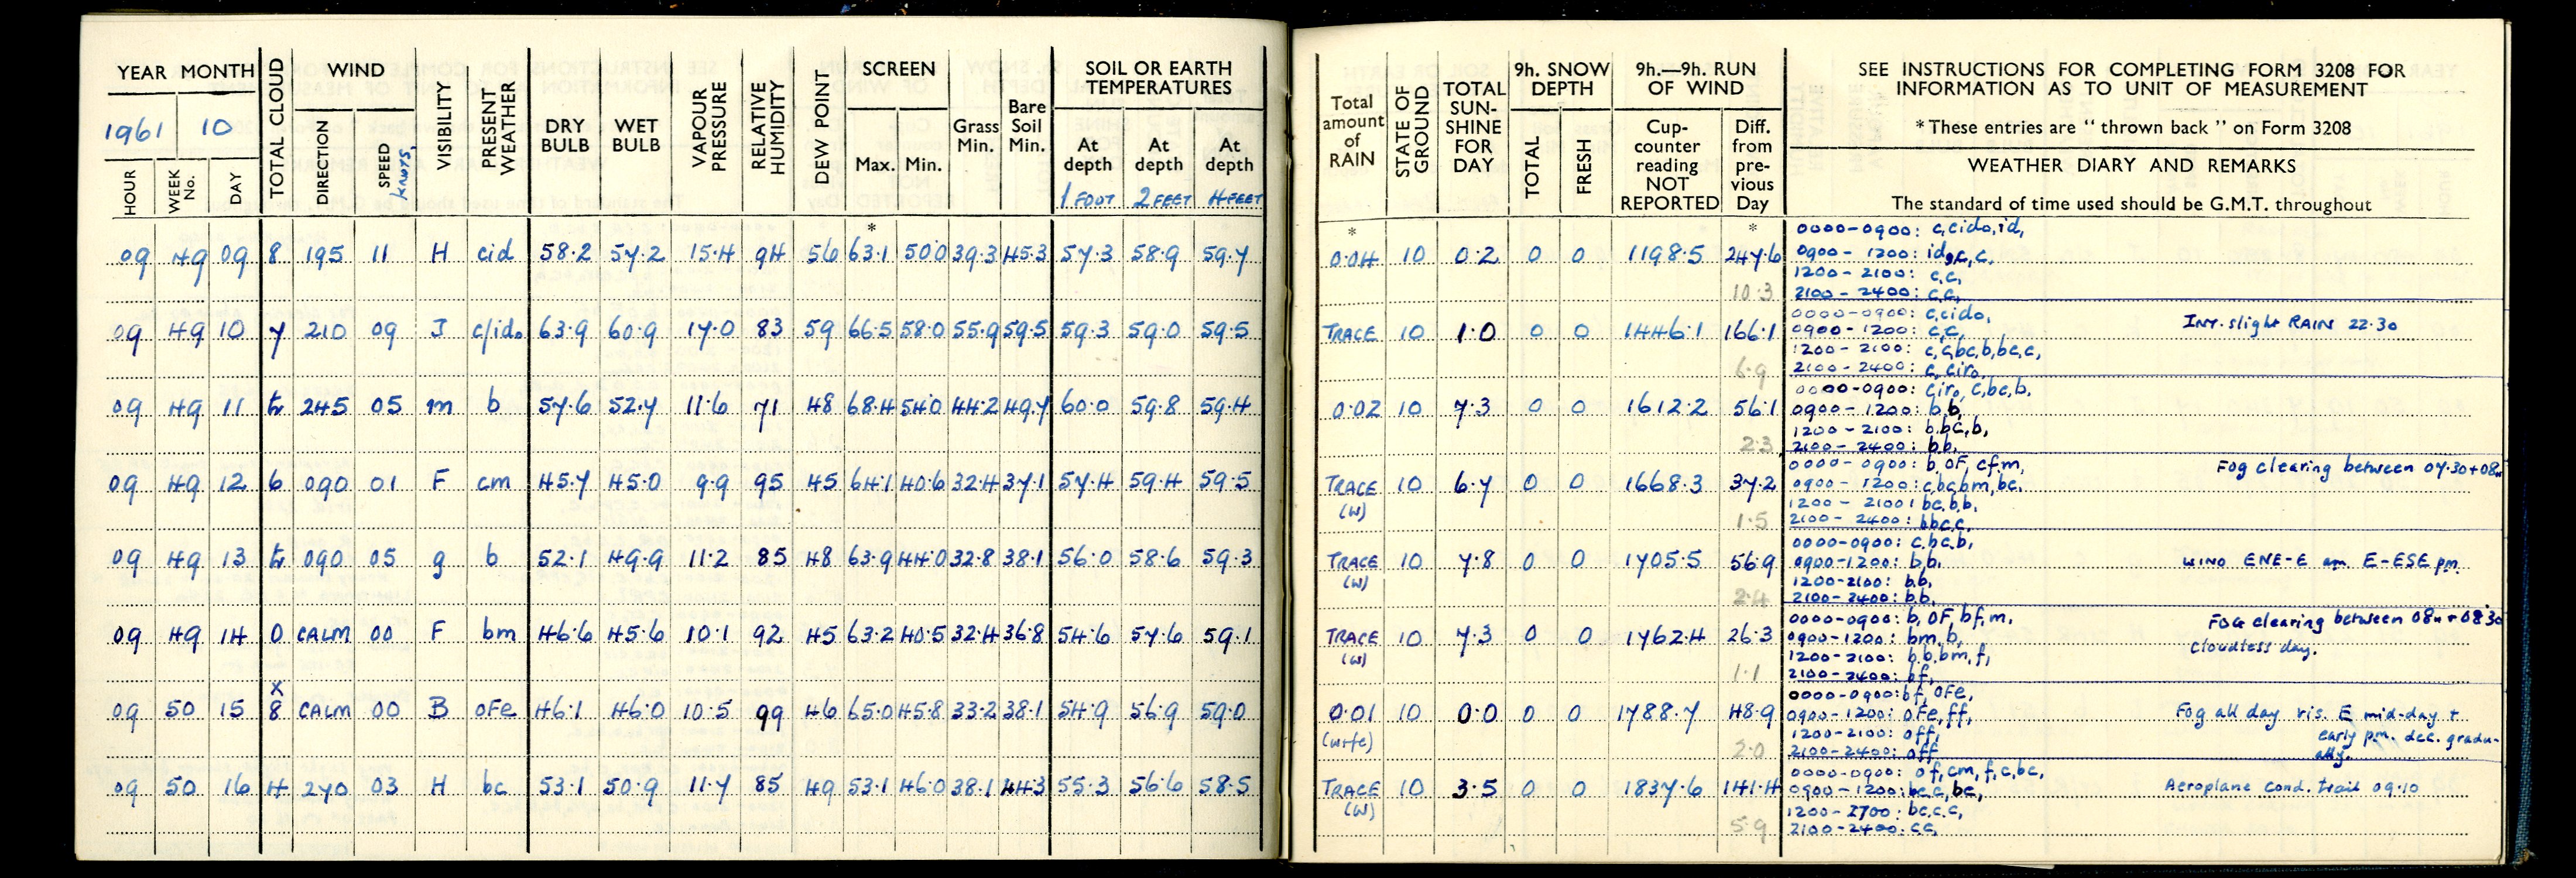 YEAR MONTH TOTAL CLOUD WIND VISIBILITY PRESENT WEATHER DRY BULB WET BULB VAPOUR PRESSURE RELATIVE HUMIDITY DEW POINT SCREEN Grass Min. Bare Soil Min. SOIL OR EARTH TEMPERATURES
1961 10 DIRECTION SPEED knots, Max. Min. At depth At depth At depth
HOUR WEEK No. DAY 1 FOOT 2 FEET 4 FEET
*
09 49 09 8 195 11 H cid 58.2 57.2 15.4 94 56 63.1 50.0 39.3 45.3 57.3 58.9 59.7
09 49 10 7 210 09 J c/ido 63.9 60.9 17.0 83 59 66.5 58.0 55.9 59.5 59.3 59.0 59.5
09 49 11 tr 245 05 m b 57.6 52.7 11.6 71 48 68.4 54.0 44.2 49.7 60.0 59.8 59.4
09 49 12 6 090 01 F cm 45.7 45.0 9.9 95 45 64.1 40.6 32.4 37.1 57.4 59.4 59.5
09 49 13 tr 090 05 g b 52.1 49.9 11.2 85 48 63.9 44.0 32.8 38.1 56.0 58.6 59.3
09 49 14 0 CALM 00 F bm 46.6 45.6 10.1 92 45 63.2 40.5 32.4 36.8 54.6 57.6 59.1
x
09 50 15 8 CALM 00 B oFe 46.1 46.0 10.5 99 46 65.0 45.8 33.2 38.1 54.9 56.9 59.0
09 50 16 4 270 03 H bc 53.1 50.9 11.7 85 49 53.1 46.0 38.1 44.3 55.3 56.6 58.5
Total amount of RAIN STATE OF GROUND TOTAL SUN-SHINE FOR DAY 9h. SNOW DEPTH TOTAL FRESH 9h.—9h. RUN OF WIND Cup-counter reading NOT REPORTED Diff. from pre-vious Day
SEE INSTRUCTIONS FOR COMPLETING FORM 3208 FOR
INFORMATION AS TO UNIT OF MEASUREMENT
*These entries are "thrown back" on Form 3208
WEATHER DIARY AND REMARKS
The standard of time used should be G.M.T. throughout
* *
0000-0900: c,cido,id,
0.04 10 0.2 0 0 1198.5 247.6 0900-1200: c,c,
1200-2100: c,c,
10.3 2100-2400: c,c,
0000-0900: c,cido,
TRACE 10 1.0 0 0 1446.1 166.1 0900-1200: c,c, Int. slight RAIN 22.30
1200-2100: c,c,bc,b,bc,c,
6.9 2100-2400: c, ciro,
0000-0900: ciro, c,bc,b,
0.02 10 7.3 0 0 1612.2 56.1 0900-1200: b,b,
1200-2100: b,bc,b,
2.3 2100-2400: b,b,
0000-0900: b, oF, cf,m, Fog clearing between 07.30+08h
TRACE 10 6.7 0 0 1668.3 37.2 0900-1200: c,bc,bm,bc,
(W) 1200-2100: bc,b,b,
1.5 2100-2400: b,bc,c,
0000-0900: c,bc,b,
TRACE 10 7.8 0 0 1705.5 56.9 0900-1200: b,b, WIND ENE-E am E-ESE pm.
(W) 1200-2100: b,b,
2.4 2100-2400: b,b,
0000-0900: b, oF, bf,m, FOG clearing between 08h+08.30
TRACE 10 7.3 0 0 1762.4 26.3 0900-1200: bm,b, Cloudless day.
(W) 1200-2100: b,b,bm,f,
1.1 2100-2400: bf,
0000-0900: bf, oFe,
0.01 10 0.0 0 0 1788.7 48.9 0900-1200: oFe,ff, Fog all day vis. E mid-day +
(w+fe) 1200-2100: off, early pm. dec. gradu-
2.0 2100-2400: off ally.
0000-0900: of,cm,f,c,bc,
TRACE 10 3.5 0 0 1837.6 141.4 0900-1200: bc,c,bc, Aeroplane cond. trail 09.10
(W) 1200-2100: bc,c,c,
5.9 2100-2400: c,c,